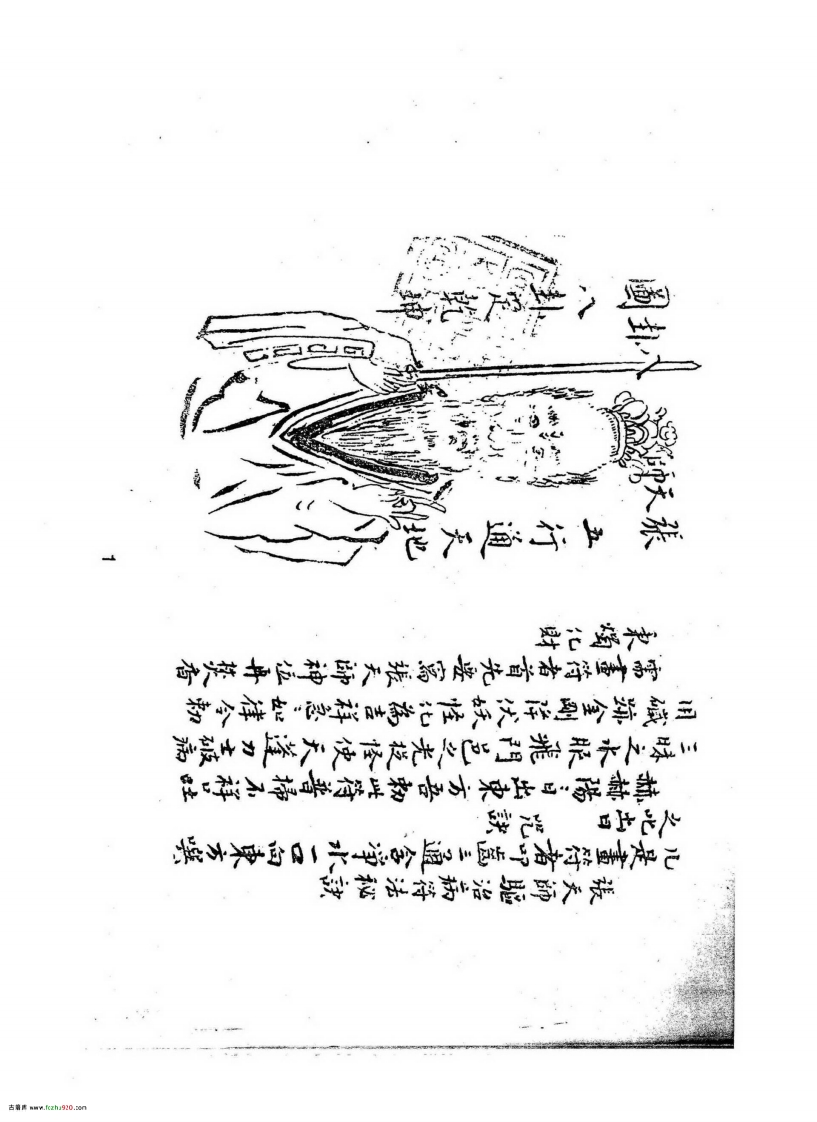 張天師驅治病符法秘訣
凡是畫符者叩齒三通含淨水一口向東方噀
之叱出曰 咒訣
赫赫陽〻日出東方吾勅此符普掃不祥吐
三昧之水眼飛門邑之光捉怪使天蓬力士破病
用 金剛降伏妖怪化為吉祥急〻如律令勅
需畫符者首先要寫張天師神位再焚香
秉燭化財
張天師
八卦圖
五行通天地
八卦定乾坤
1
古籍库 www.fczhu920.com